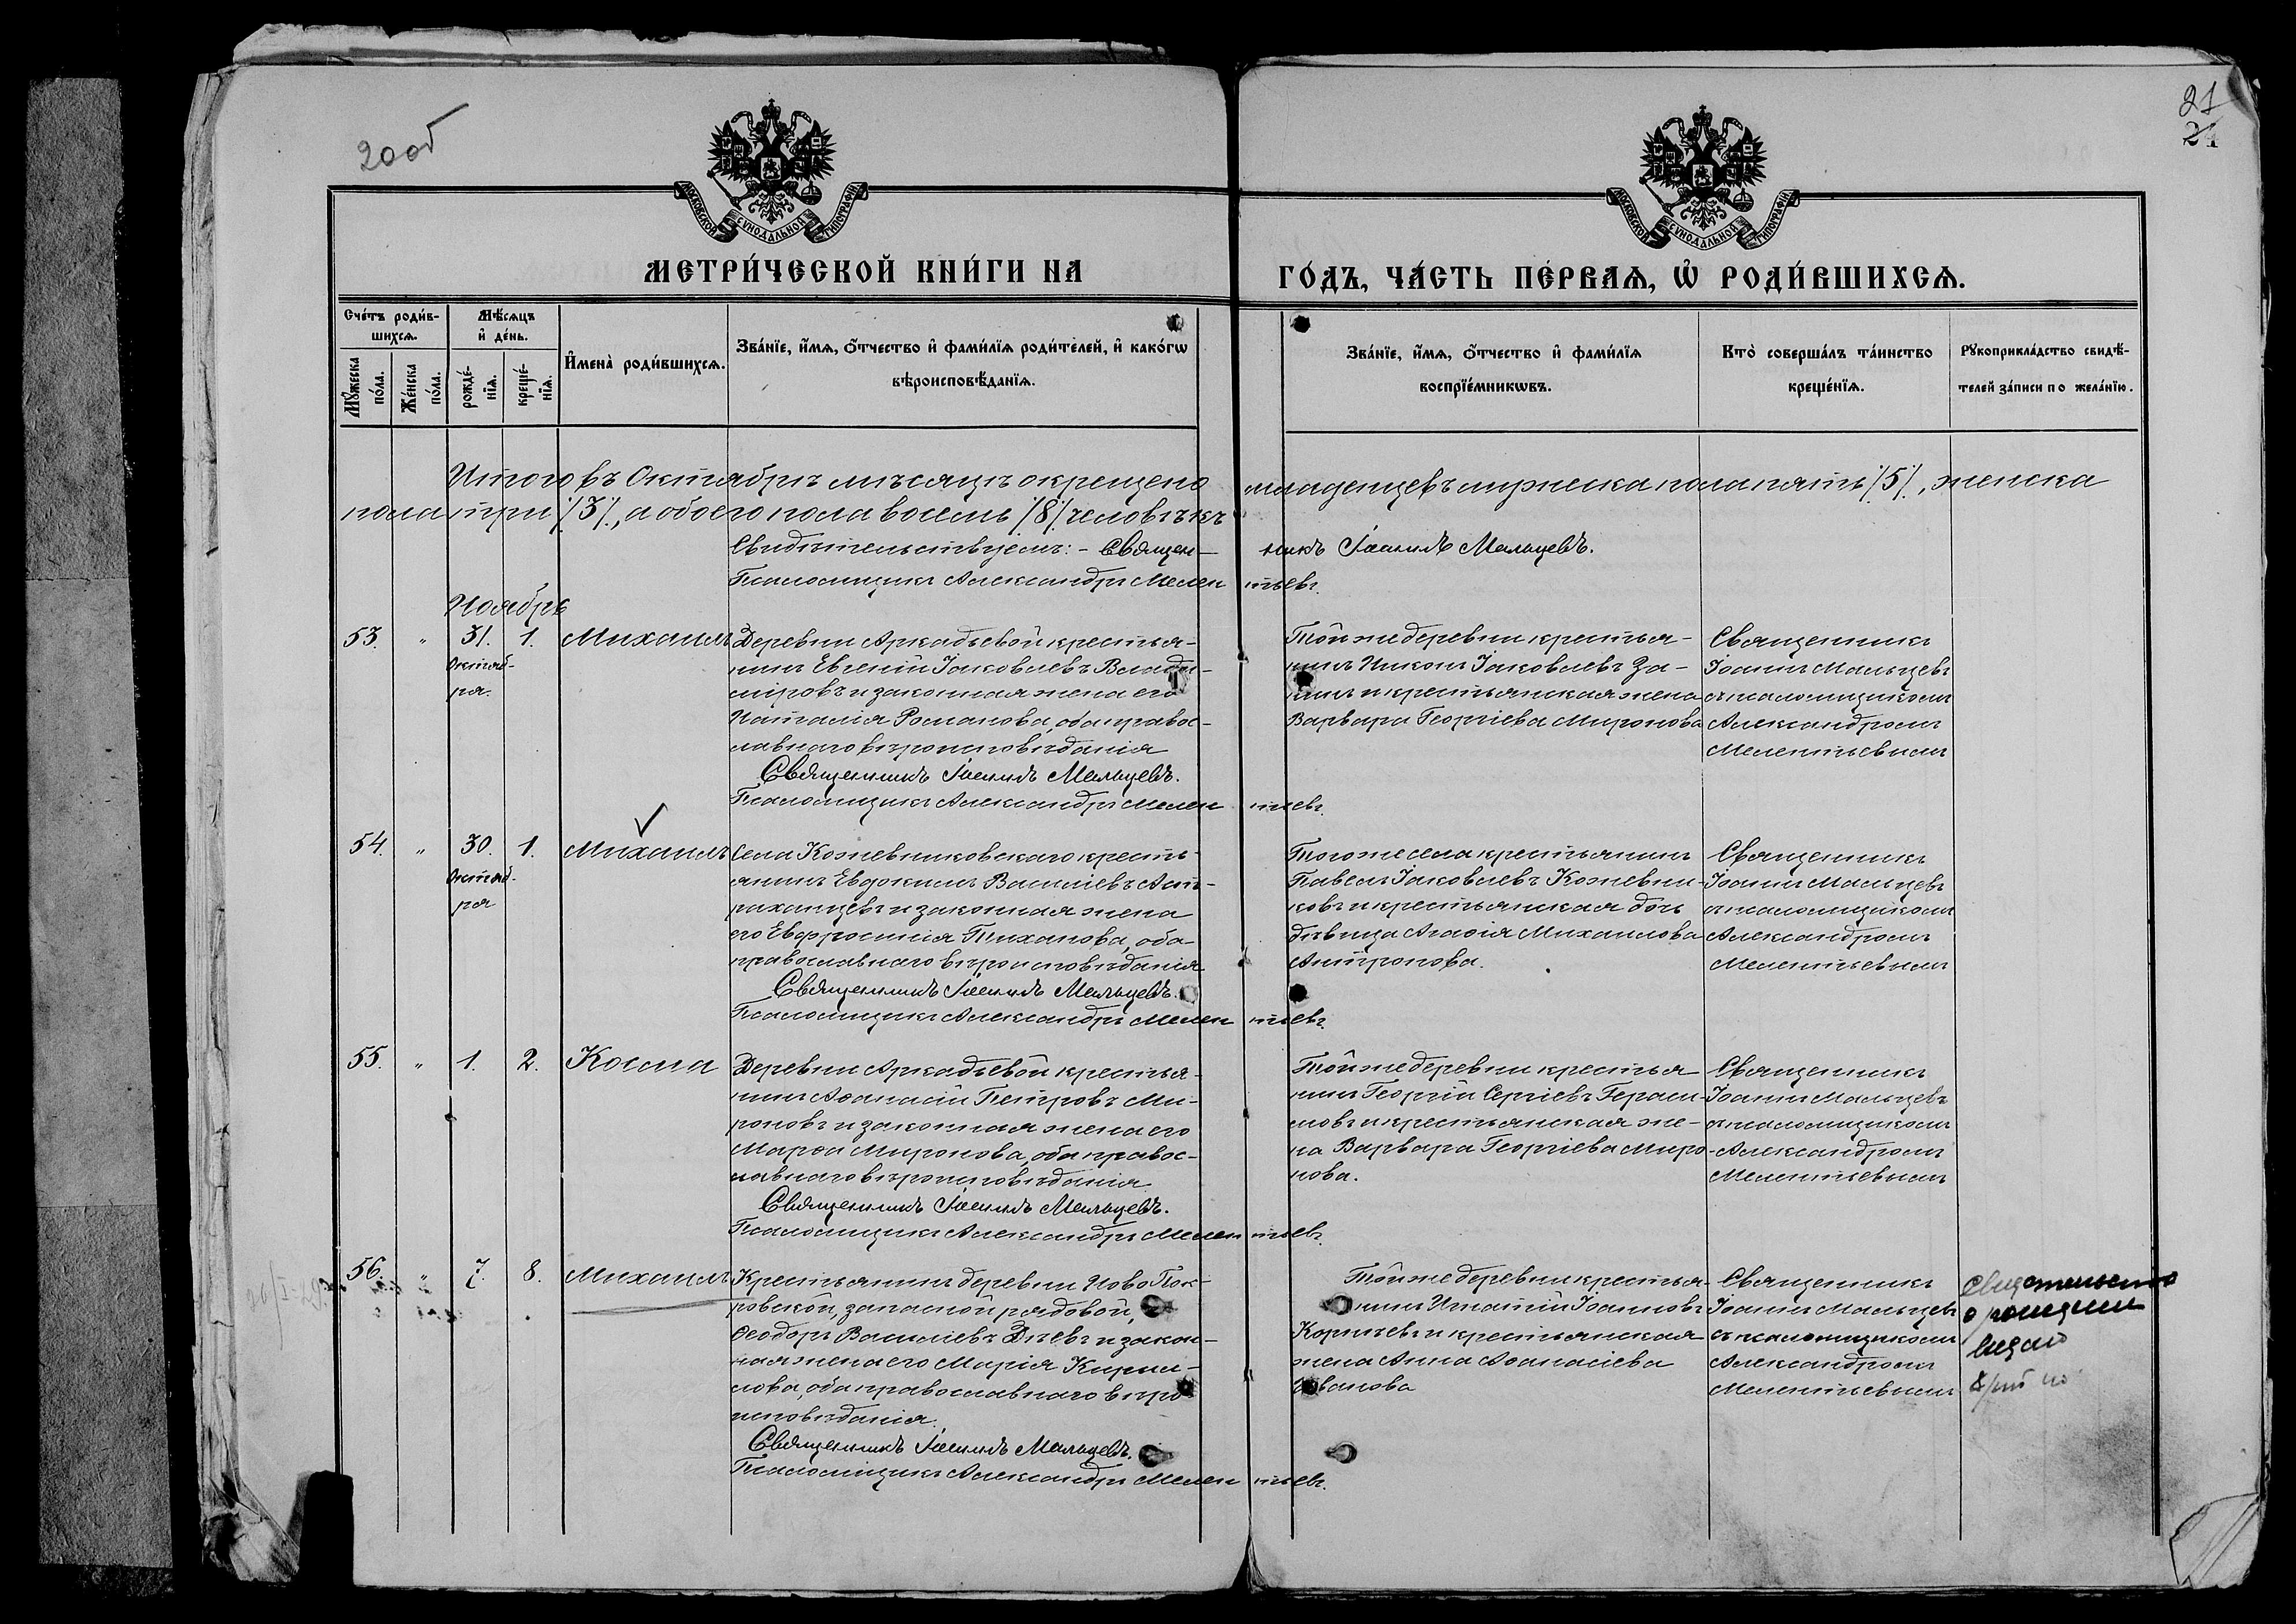 20об
21
24
МОСКОВСКОЙ СѴНОДАЛЬНОЙ ТИПОГРАФІИ
МОСКОВСКОЙ СѴНОДАЛЬНОЙ ТИПОГРАФІИ
МЕТРИ́ЧЕСКОЙ КНИ́ГИ НА
ГО́ДЪ, ЧА́СТЬ ПЕ́РВАѦ, Ѡ҆ РОДИ́ВШИХСѦ.
Сче́тъ роди́в-
шихсѧ.
Мѣ́сѧцъ
и҆ де́нь.
Мꙋ́жеска
по́ла.
Же́нска
по́ла.
рожде́-
нїѧ.
креще́-
нїѧ.
И҆мена̀ роди́вшихсѧ.
Зва́нїе, и҆́мѧ, ѻ҆́тчество и҆ фами́лїѧ роди́телей, и҆ како́гѡ
вѣроисповѣ́данїѧ.
Зва́нїе, и҆́мѧ, ѻ҆́тчество и҆ фами́лїѧ
воспрїе́мникѡвъ.
Кто̀ соверша́лъ та́инство
креще́нїѧ.
Рꙋкоприкла́дство свидѣ́-
телей за́писи по жела́нїю.
Итого въ Октябрѣ мѣсяцѣ окрещено младенцевъ мужеска пола пять /5/, женска
пола три /3/, а обоего пола восемь /8/ человѣкъ
Свидѣтельствуемъ: - Священникъ Іоаннъ Мальцевъ.
Псаломщикъ Александръ Мелентьевъ.
Ноябрь
53. " 31. 1. Михаилъ
Октяб-
ря.
Деревни Аркадьевой крестья-
нинъ Евгеній Іаковлевъ Влади-
міровъ и законная жена его
Наталія Романова, оба правос-
лавнаго вѣроисповѣданія
Священникъ Іоаннъ Мальцевъ.
Псаломщикъ Александръ Мелентьевъ.
Той же деревни крестья-
нинъ Никонъ Іаковлевъ За-
нинъ и крестьянская жена
Варвара Георгіева Миронова
Священникъ
Іоаннъ Мальцевъ
съ псаломщикомъ
Александромъ
Мелентьевымъ
54. " 30. 1. Михаилъ
Октяб-
ря
Села Кожевниковскаго кресть-
янинъ Евдокимъ Василіевъ Аст-
раханцевъ и законная жена
его Евфросинія Тиханова, оба
православнаго вѣроисповѣданія
Священникъ Іоаннъ Мальцевъ.
Псаломщикъ Александръ Мелентьевъ.
Того же села крестьянинъ
Павелъ Іаковлевъ Кожевни-
ковъ и крестьянская дочь
дѣвица Агаѳія Михаилова
Антропова.
Священникъ
Іоаннъ Мальцевъ
съ псаломщикомъ
Александромъ
Мелентьевымъ
55. " 1. 2. Косма
Деревни Аркадьевой крестья-
нинъ Аѳанасій Петровъ Ми-
роновъ и законная жена его
Марѳа Миронова, оба правос-
лавнаго вѣроисповѣданія
Священникъ Іоаннъ Мальцевъ.
Псаломщикъ Александръ Мелентьевъ.
Той же деревни крестья
нинъ Георгій Сергіевъ Гераси-
мовъ и крестьянская же-
на Варвара Георгіева Миро-
нова.
Священникъ
Іоаннъ Мальцевъ
съ псаломщикомъ
Александромъ
Мелентьевымъ
56. " 7. 8. Михаилъ
Крестьянинъ деревни Ново Пок-
ровской, запасной рядовой,
Ѳеодоръ Василіевъ Дѣевъ и закон-
ная жена его Марія Кирил-
лова, оба православнаго вѣро
исповѣданія.
Священникъ Іоаннъ Мальцевъ.
Псаломщикъ Александръ Мелентьевъ.
Той же деревни крестья-
нинъ Игнатій Іоанновъ
Корнѣевъ и крестьянская
жена Анна Аѳанасіева
Иванова
Священникъ
Іоаннъ Мальцевъ
съ псаломщикомъ
Александромъ
Мелентьевымъ
о рождении